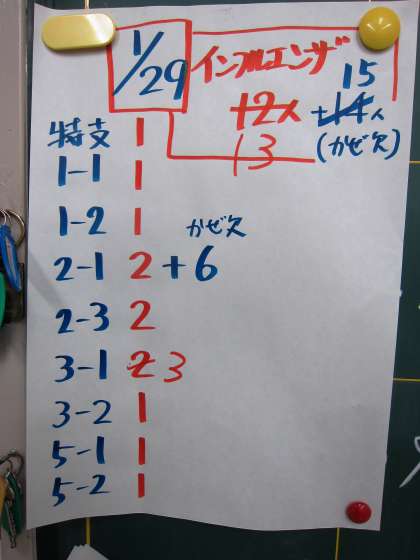 1/29 インフルエンザ
15
12人 +14人
13 (かぜ欠)
特支 1
1-1 1
1-2 1
かぜ欠
2-1 2 +6
2-3 2
3-1 2 3
3-2 1
5-1 1
5-2 1